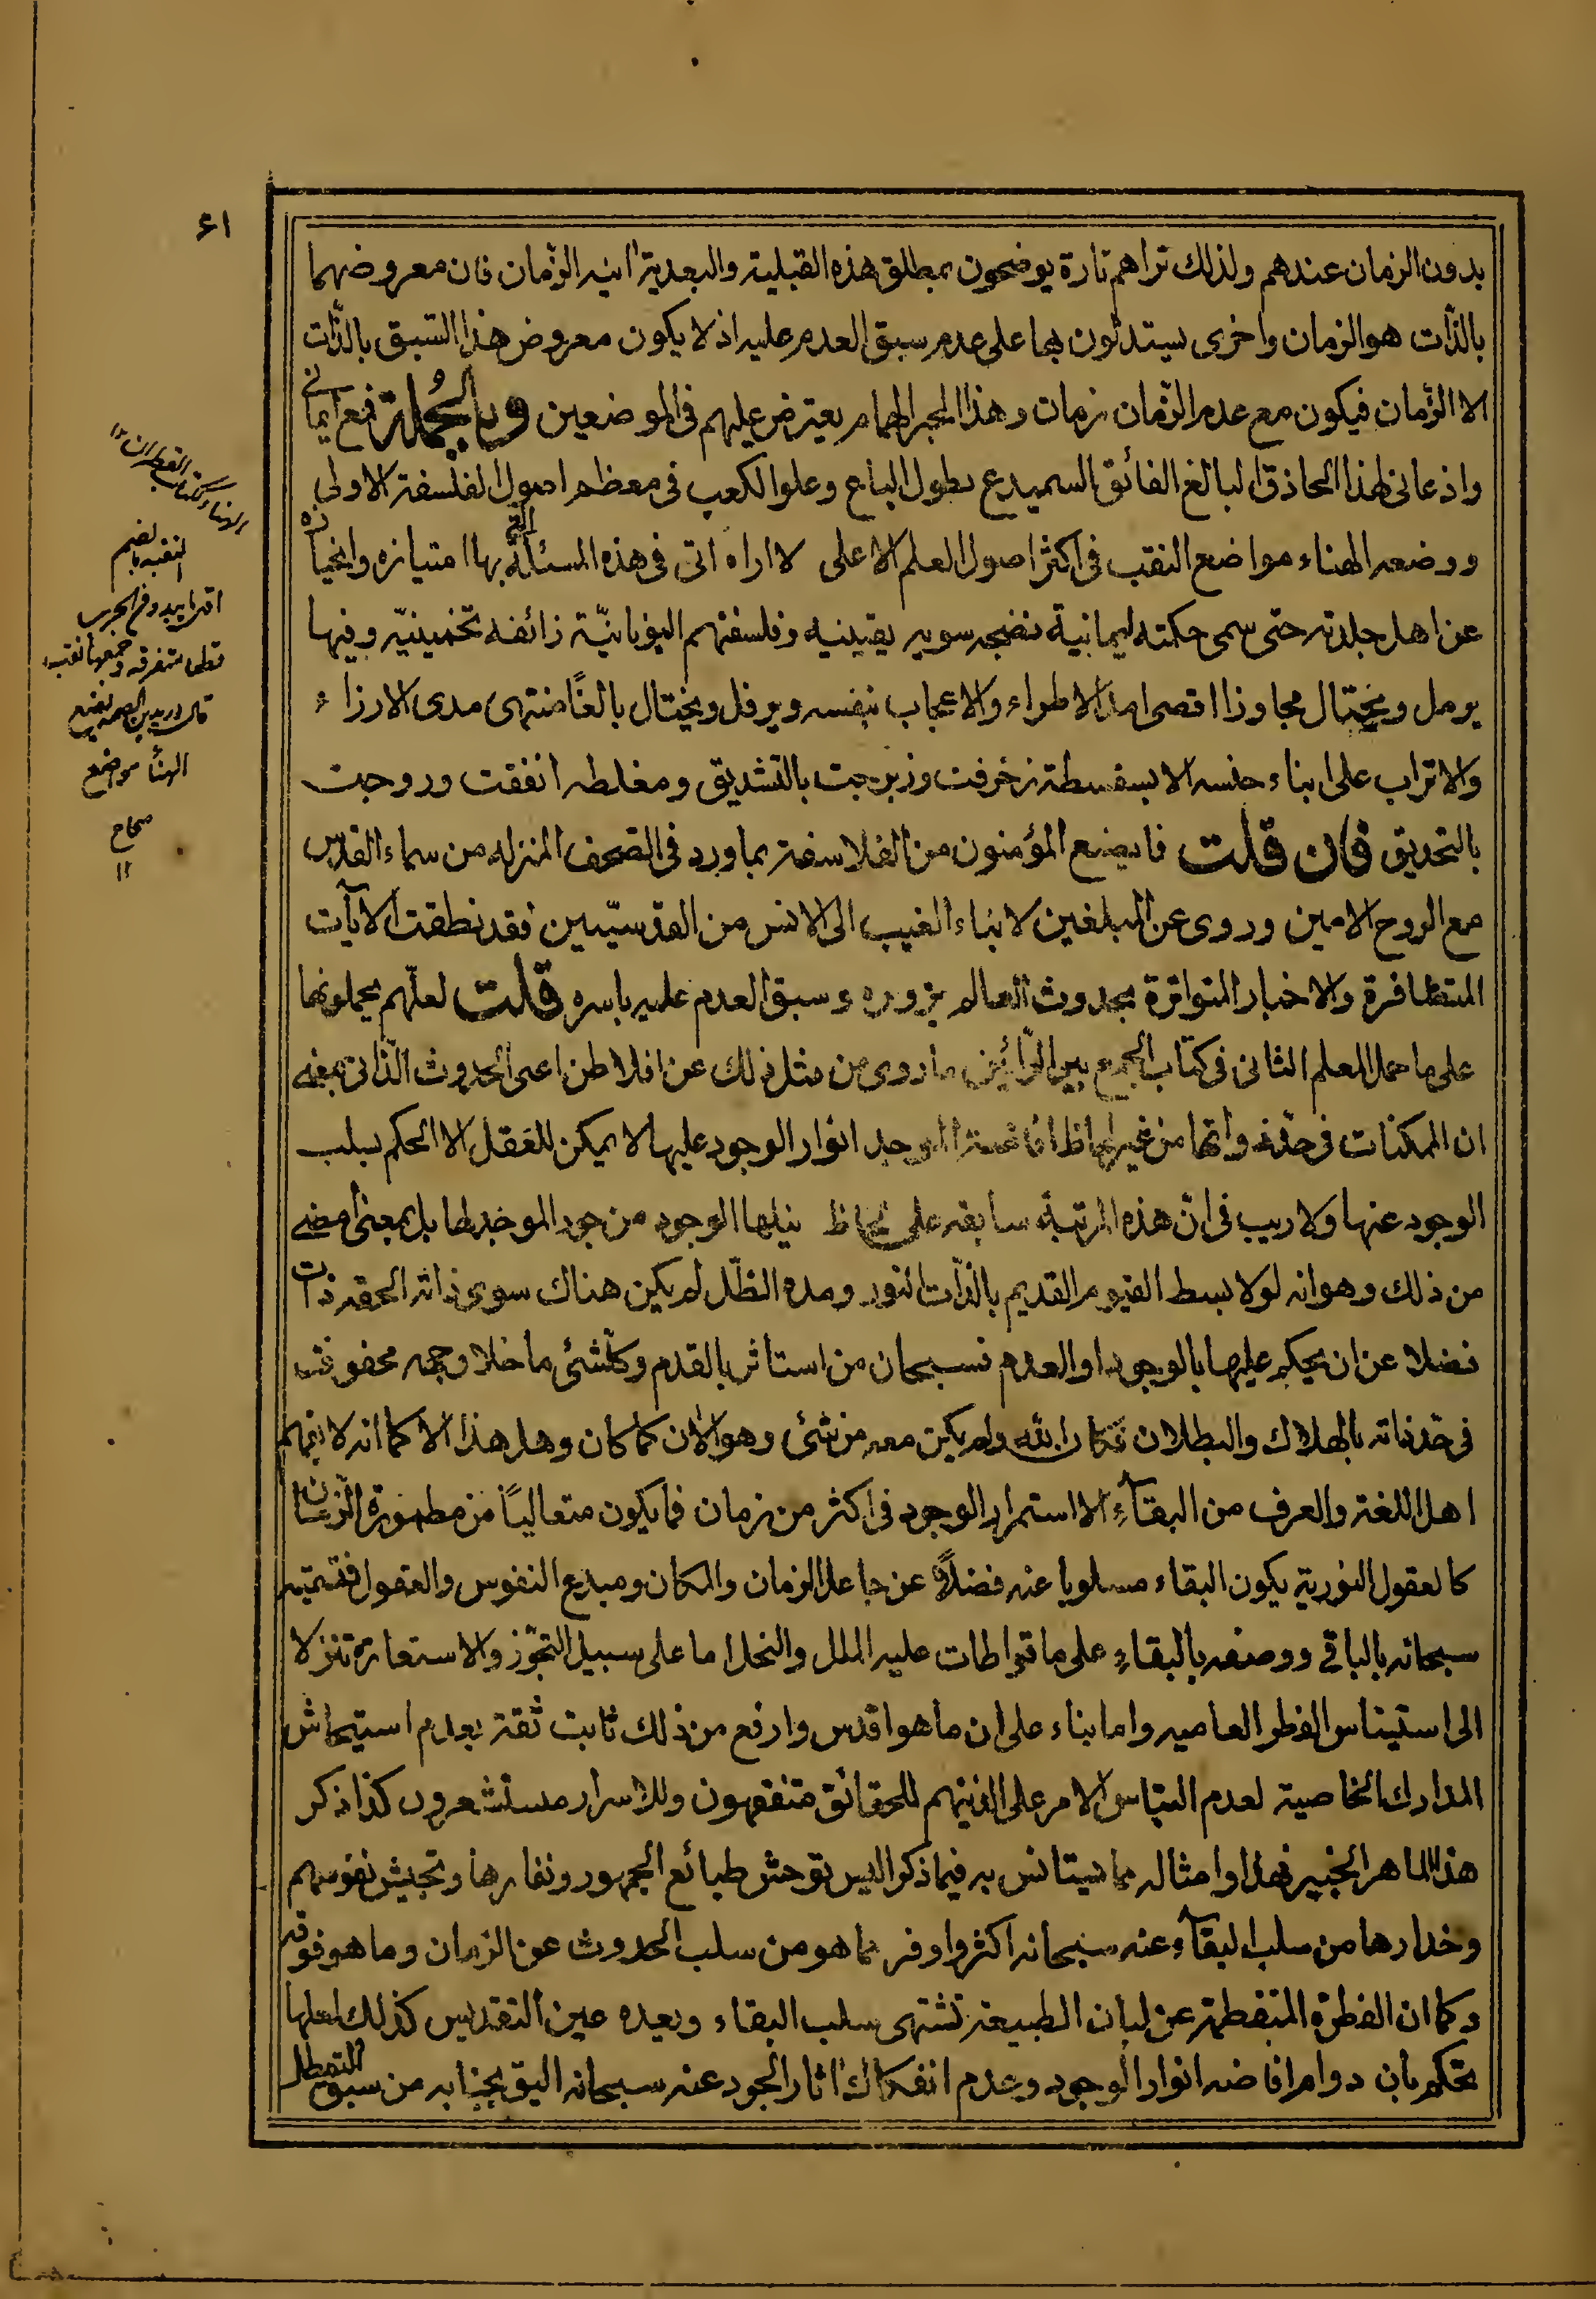 ٤١
بدون الزمان عندهم ولذلك تراهم تارة يوضحون بمطلق هذه القبلية والبعدية انية الزمان فان معروضهما
بالذات هو الزمان واخرى يستدلون بها على عدم سبق العدم عليه اذ لا يكون معروض هذا السبق بالذات
الا الزمان فيكون مع عدم الزمان زمان وهذا الحبر الهمام يعترض عليهم في الموضعين وبالجملة فمع ايماني
واذعاني لهذا الحاذق البالغ الفائق السميدع بطول الباع وعلو الكعب في معظم اصول الفلسفة الاولى
ووضعه الهناء مواضع النقب في اكثر اصول العلم الاعلى لا اراه اتى في هذه المسئلة التي بها امتيازه وانحيازه
عن اهل جلدته حتى سمى حكمته ايمانية نضيجه سويه يقينيه وفلسفتهم اليونانيّة زائفه تخمينيّه وفيها
يرمل ويختال مجاوزا اقصى امد الاطراء والاعجاب بنفسه ويرفل ويختال بالغًا منتهى مدى الارزاء
والاتراب على ابناء جنسه الا بسفسطة زخرفت وزبرجت بالتشديق ومغلطه انفقت وروجت
بالتحديق فان قلت فما يصنع المؤمنون من الفلاسفة بما ورد في الصحف المنزله من سماء القدس
مع الروح الامين وروى عن المبلغين لانباء الغيب الى الانس من القدسيّين فقد نطقت الايآت
المتظافرة والاخبار المتواترة بحدوث العالم بزوره وسبق العدم عليه باسره قلت لعلّهم يحملونها
على ما حمل المعلم الثاني في كتاب الجمع بين الرّائين ما روى من مثل ذلك عن افلاطن اعنى الحدوث الذّاتى بمعنى
ان الممكنات في حد وانها من غير لحاظ افاضة الموجد انوار الوجود عليها لا يمكن للعقل الا الحكم بسلب
الوجود عنها ولا ريب في انّ هذه المرتبة سابقه على لحاظ نيلها الوجود من جود الموجد لها بل بمعنى امضى
من ذلك وهو انه لولا بسط القيوم القديم بالذّات النور ومده الظّل لم يكن هناك سوى ذاته الحقه ذات
فضلا عن ان يحكم عليها بالوجود او العدم فسبحان من استأثر بالقدم وكلّشئ ما خلا وجهه محفوف
في حّد ذاته بالهلاك والبطلان فكان الله ولم يكن معه من شئ وهو الآن كما كان وهل هذا الا كما انه لا يفهم
اهل اللغة والعرف من البقآء الا استمرار الوجود في اكثر من زمان فما يكون متعاليًا من مطمورة الزمان
كالعقول النورية يكون البقاء مسلوبا عنه فضلًا عن جاعل الزمان والمكان ومبدع النفوس والعقول فتسميته
سبحانه بالباقي ووصفه بالبقاء على ما تواطات عليه الملل والنحل اما على سبيل التجوّز والاستعارة تنزلا
الى استيناس الفطر العاميه واما بناء على ان ما هو اقدس وارفع من ذلك ثابت ثقة بعدم استيحاش
المدارك الخاصية لعدم التباس الامر على الذينهم للحقائق متفقهون وللاسرار مستشعرون كذا ذكر
هذا الماهر الخبير فهذا وامثاله مما يستانس به فيما ذكر اليس توحش طبائع الجمهور ونفارها وتجيش نفوسهم
وخدارها من سلب البقآء عنه سبحانه اكثر واوفر مما هو من سلب الحدوث عن الزمان وما هو فوقه
وكما ان الفطرة المنفطمة عن لبان الطبيعة تشتهى سلب البقاء وبعده عين التقديس كذلك لعلها
تحكم بان دوام افاضه انوار الوجود وعدم انفكاك اثار الجود عنه سبحانه اليق بجنابه من سبق التعطل
الهناء ككتاب القطران
النقبه بالضم
اول ما يبدو من الجرب
قطعا متفرقه وجمعها نقب
قال دريد بن الصمه يضع
الهنأ موضع
صحاح
١١